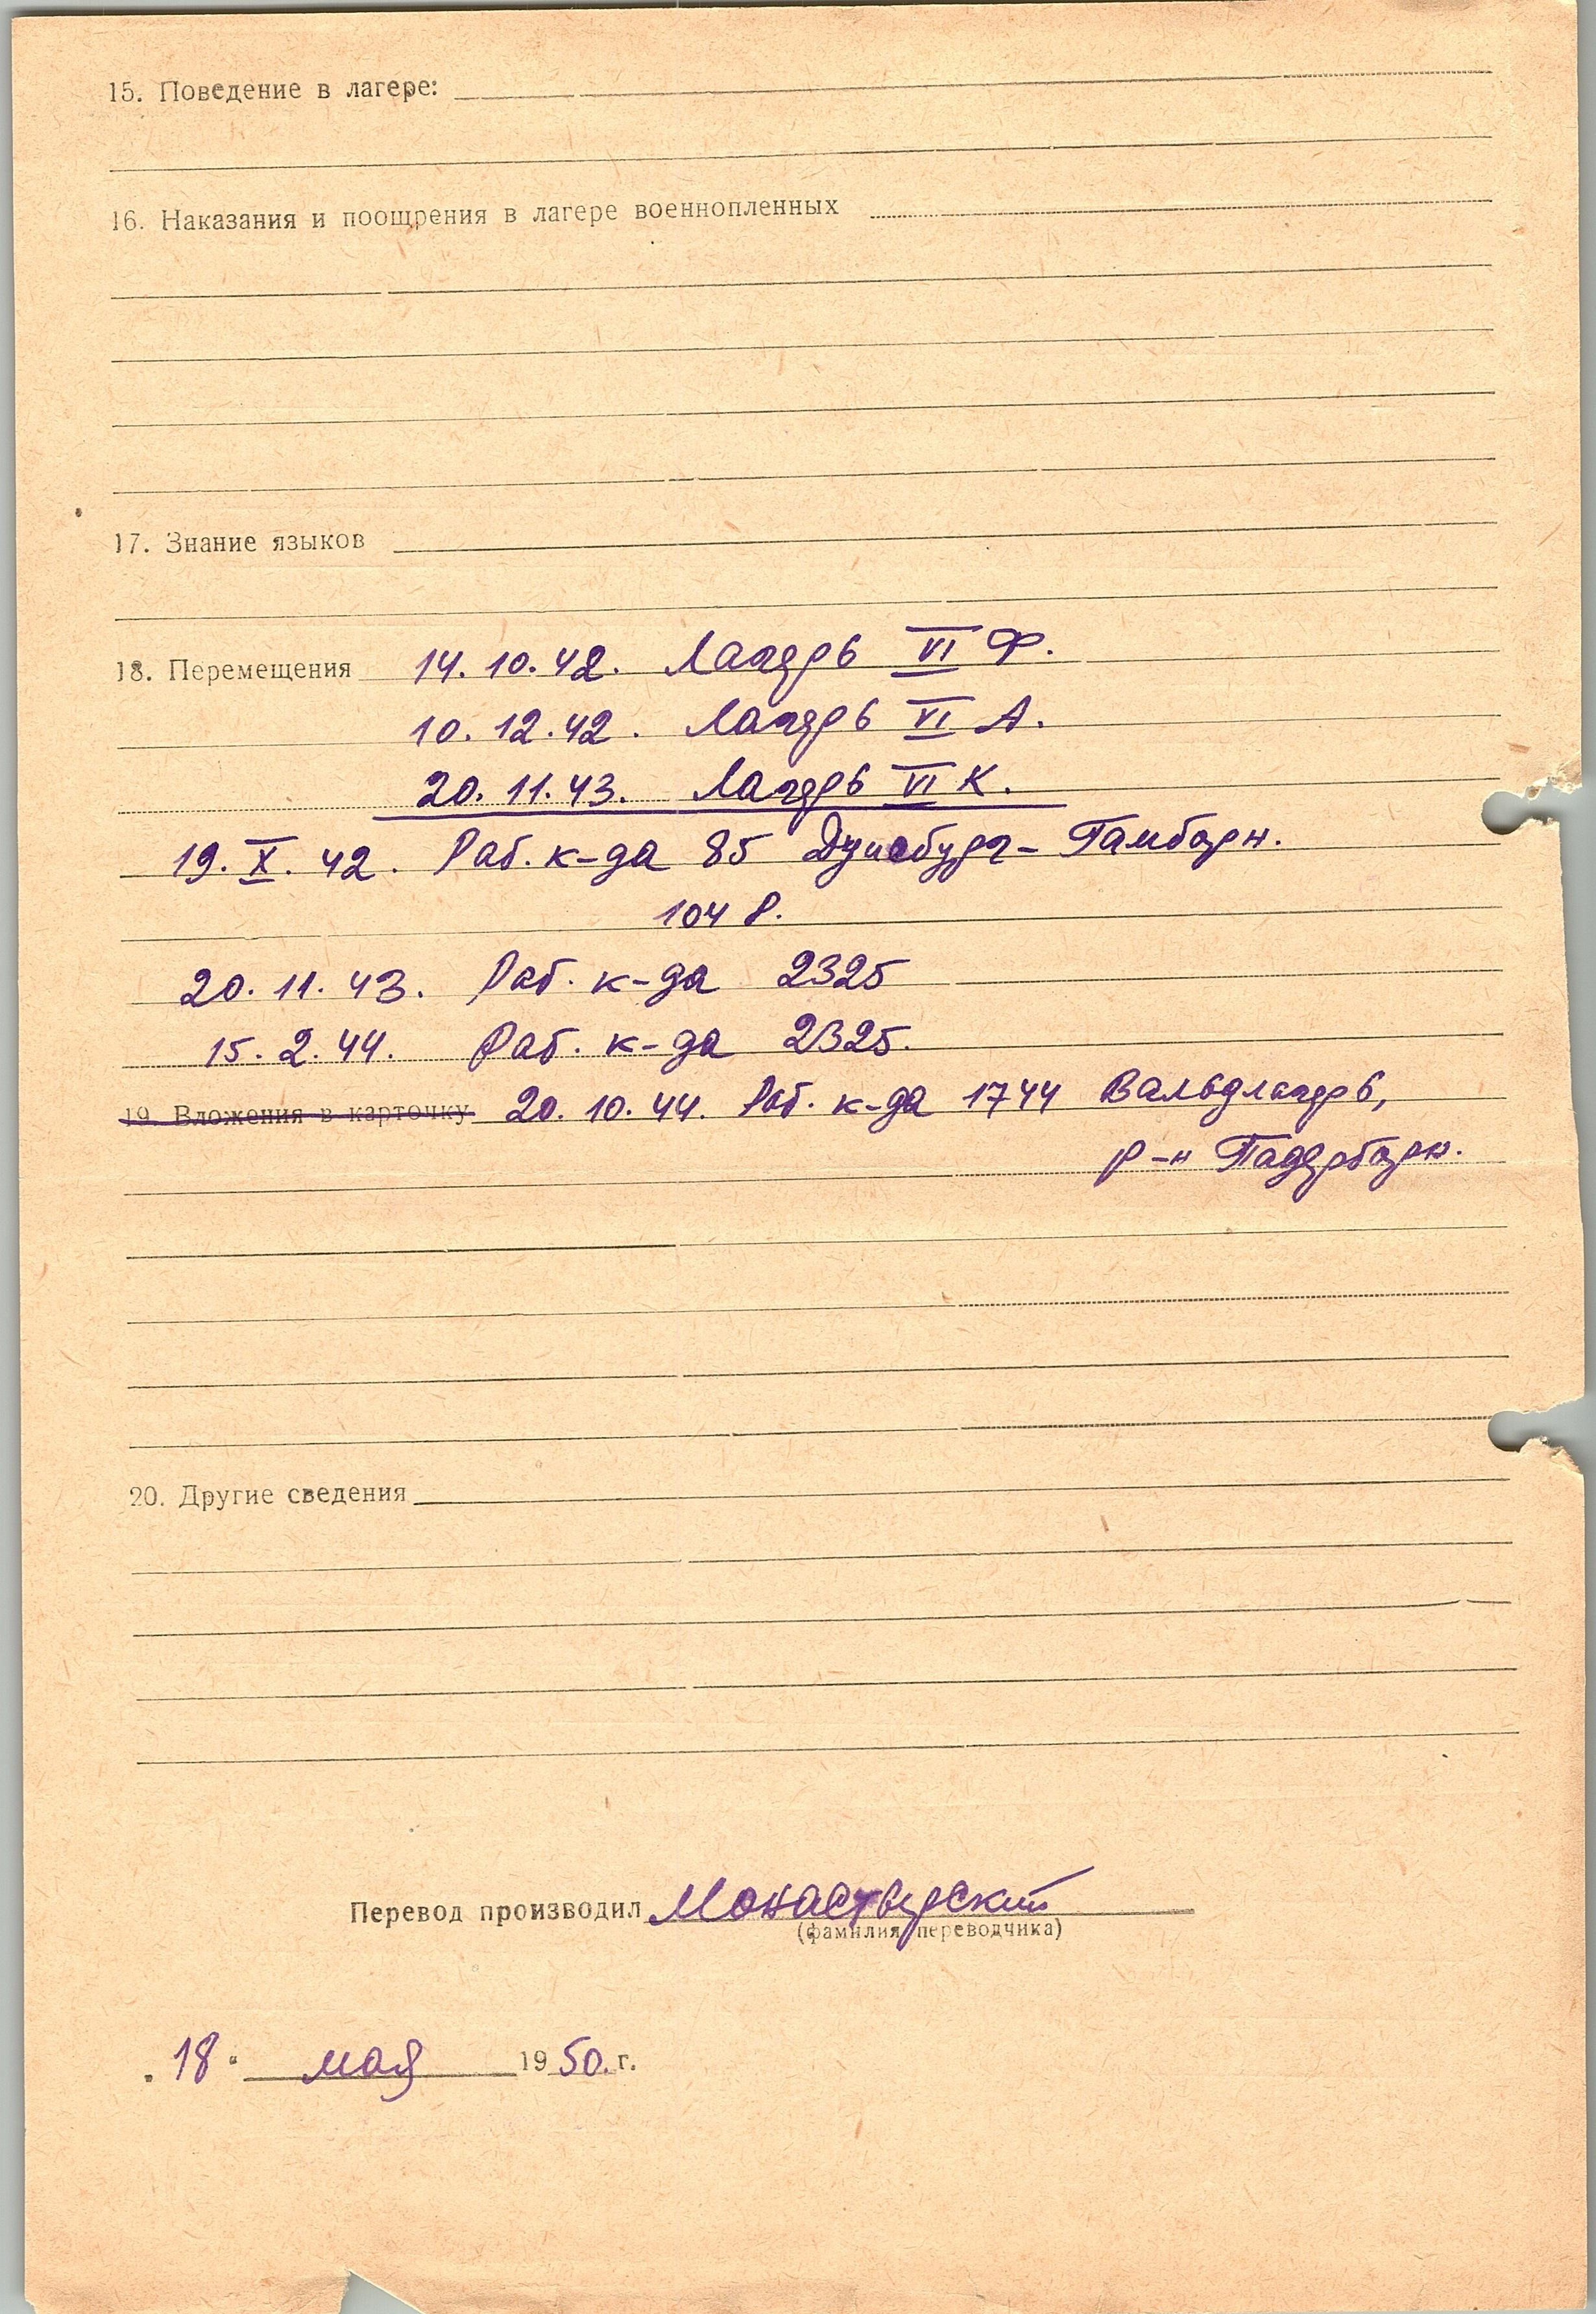 15. Поведение в лагере:
16. Наказания и поощрения в лагере военнопленных
17. Знание языков
18. Перемещения 14.10.42. Лагерь VI Ф.
10.12.42. Лагерь VI А.
20.11.43. Лагерь VI К.
19.X.42. Раб. к-да 85 Дуисбург-Гамборн.
104 Р.
20.11.43. Раб. к-да 2325
15.2.44. Раб. к-да 2325.
19. Вложения в карточку 20.10.44. Раб. к-да 1744 Вальдлагерь,
р-н Падерборн.
20. Другие сведения
Перевод производил Монастырский
(фамилия переводчика)
"18" мая 1950.г.